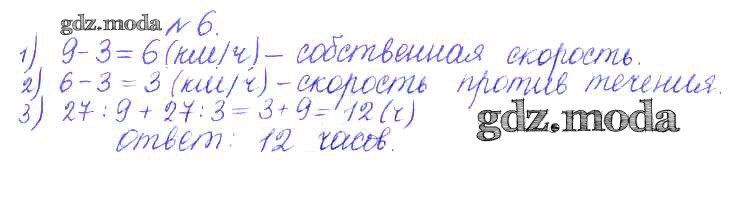 gdz.moda № 6.
1) 9 - 3 = 6 (км/ч) - собственная скорость.
2) 6 - 3 = 3 (км/ч) - скорость против течения.
3) 27 : 9 + 27 : 3 = 3 + 9 = 12 (ч)
gdz.moda
Ответ: 12 часов.